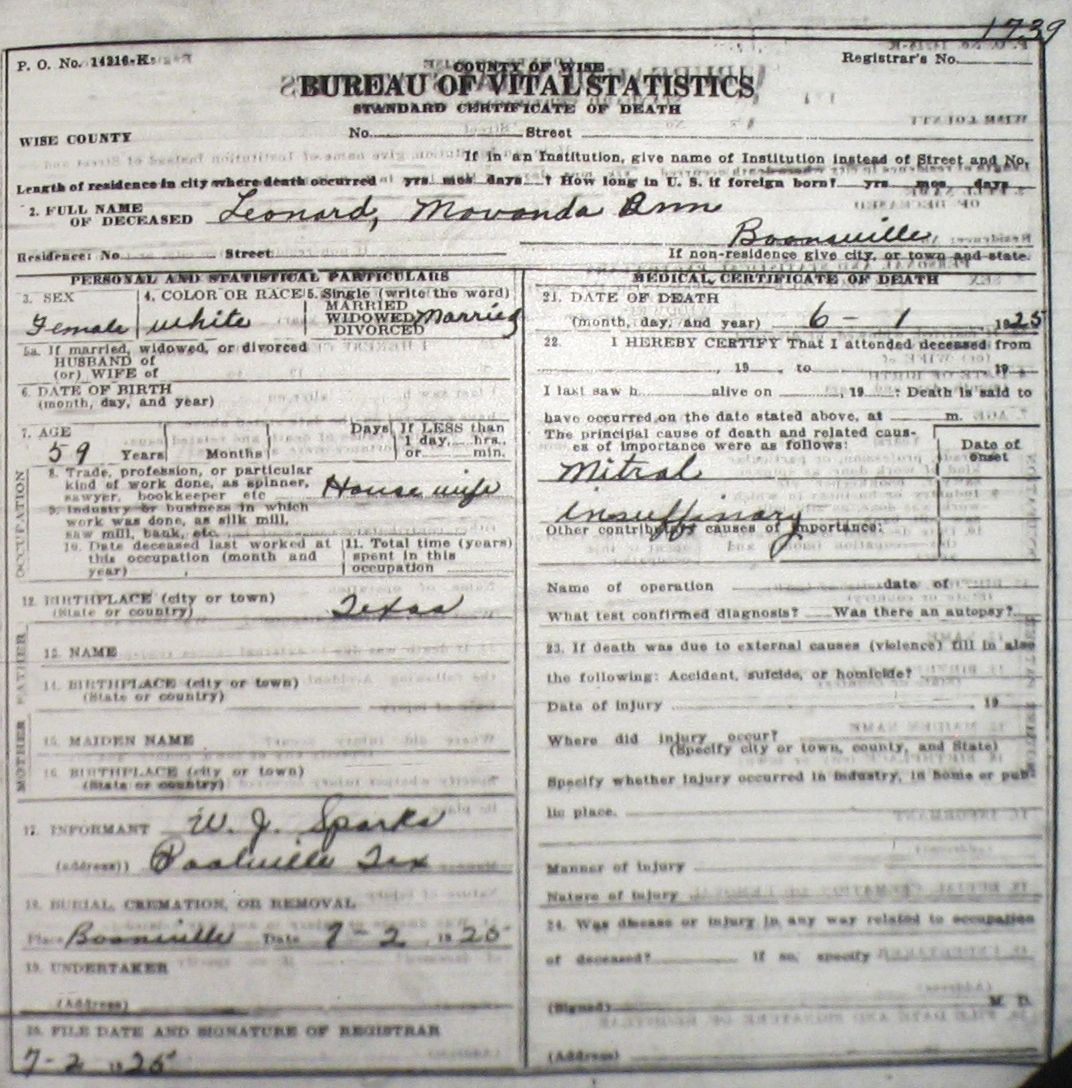 1739
P. O. No. 14216-K
Registrar's No.
COUNTY OF WISE
BUREAU OF VITAL STATISTICS
STANDARD CERTIFICATE OF DEATH
WISE COUNTY No. Street
If in an Institution, give name of Institution instead of Street and No.
Length of residence in city where death occurred yrs mos days ? How long in U. S. if foreign born? yrs mos days
2. FULL NAME OF DECEASED Leonard, Movanda Ann
Boonsville
Residence: No. Street If non-residence give city, or town and state.
PERSONAL AND STATISTICAL PARTICULARS
3. SEX 4. COLOR OR RACE 5. Single (write the word)
MARRIED
WIDOWED
DIVORCED
Female white Married
5a. If married, widowed, or divorced
HUSBAND of
(or) WIFE of
6. DATE OF BIRTH
(month, day, and year)
7. AGE Days If LESS than
59 Years Months 1 day, hrs.,
or min.
OCCUPATION
8. Trade, profession, or particular
kind of work done, as spinner,
sawyer, bookkeeper etc House wife
9. Industry or business in which
work was done, as silk mill,
saw mill, bank, etc.
10. Date deceased last worked at
this occupation (month and
year)
11. Total time (years)
spent in this
occupation
12. BIRTHPLACE (city or town)
(State or country) Texas
FATHER
13. NAME
14. BIRTHPLACE (city or town)
(State or country)
MOTHER
15. MAIDEN NAME
16. BIRTHPLACE (city or town)
(State or country)
17. INFORMANT W. J. Sparks
(address)) Poolville Tex
18. BURIAL, CREMATION, OR REMOVAL
Place Boonville Date 7-2 1925
19. UNDERTAKER
(Address)
20. FILE DATE AND SIGNATURE OF REGISTRAR
7-2 1925
MEDICAL CERTIFICATE OF DEATH
21. DATE OF DEATH
(month, day, and year) 6 - 1 1925
22. I HEREBY CERTIFY That I attended deceased from
, 19 , to 19
I last saw h alive on , 19 : Death is said to
have occurred on the date stated above, at m.
The principal cause of death and related caus-
es of importance were as follows:
Date of
onset
Mitral
insuffinary
Other contributory causes of importance:
Name of operation date of
What test confirmed diagnosis? Was there an autopsy?
23. If death was due to external causes (violence) fill in also
the following: Accident, suicide, or homicide?
Date of injury 19
Where did injury occur?
(Specify city or town, county, and State)
Specify whether injury occurred in industry, in home or pub
lic place.
Manner of injury
Nature of injury
24. Was disease or injury in any way related to occupation
of deceased? If so, specify
(Signed) M. D.
(Address)